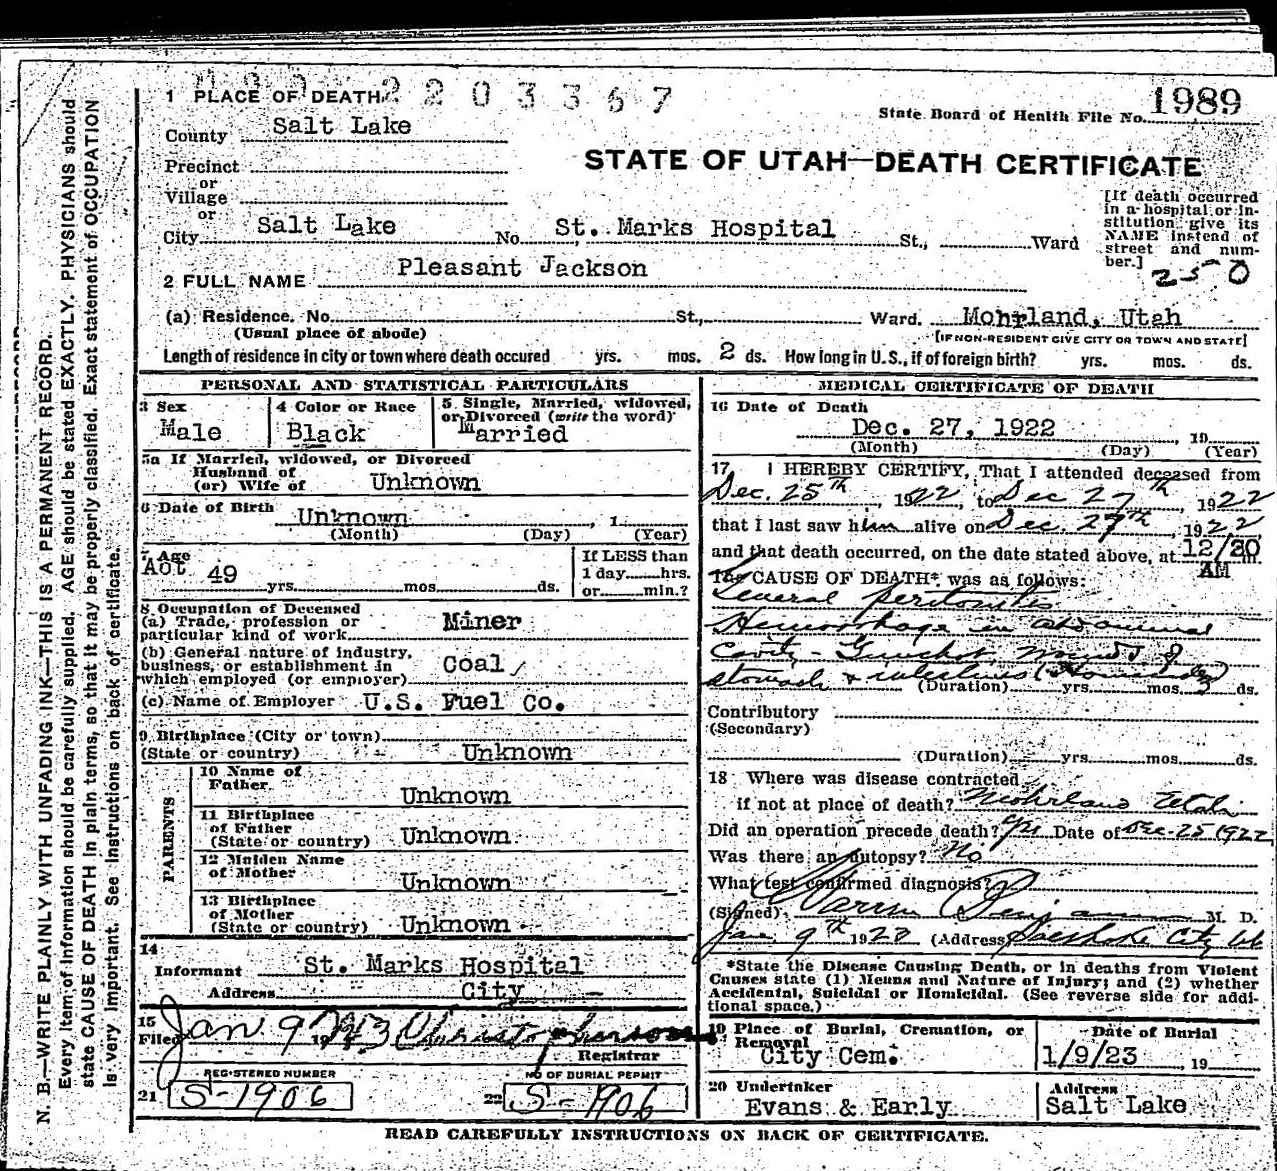 2203367
1 PLACE OF DEATH
State Board of Health File No. 1989
County Salt Lake
STATE OF UTAH—DEATH CERTIFICATE
Precinct
or
Village
or
City Salt Lake No. St. Marks Hospital St., Ward
[If death occurred
in a hospital or in-
stitution give its
NAME instead of
street and num-
ber.]
250
2 FULL NAME Pleasant Jackson
(a) Residence. No. St., Ward. Mohrland, Utah
(Usual place of abode) [IF NON-RESIDENT GIVE CITY OR TOWN AND STATE]
Length of residence in city or town where death occured yrs. mos. 2 ds. How long in U.S., if of foreign birth? yrs. mos. ds.
PERSONAL AND STATISTICAL PARTICULARS
3 Sex
Male
4 Color or Race
Black
5 Single, Married, widowed,
or Divorced (write the word)
Married
5a If Married, widowed, or Divorced
Husband of
(or) Wife of Unknown
6 Date of Birth Unknown, 1
(Month) (Day) (Year)
7 Age
Abt 49 yrs. mos. ds.
If LESS than
1 day hrs.
or min.?
8 Occupation of Deceased
(a) Trade, profession or
particular kind of work Miner
(b) General nature of industry,
business, or establishment in
which employed (or employer) Coal
(c) Name of Employer U.S. Fuel Co.
9 Birthplace (City or town)
(State or country) Unknown
PARENTS
10 Name of
Father Unknown
11 Birthplace
of Father
(State or country) Unknown
12 Maiden Name
of Mother Unknown
13 Birthplace
of Mother
(State or country) Unknown
14
Informant St. Marks Hospital
Address City
15
Filed Jan 9 1923 Christopherson
Registrar
REGISTERED NUMBER
21 S-1906
NO OF BURIAL PERMIT
22 S-1906
MEDICAL CERTIFICATE OF DEATH
16 Date of Death
Dec. 27, 1922, 19
(Month) (Day) (Year)
17 I HEREBY CERTIFY, That I attended deceased from
Dec. 25th, 1922, to Dec 27th, 1922
that I last saw him alive on Dec. 27th, 1922
and that death occurred, on the date stated above, at 12/30 m.
AM
The CAUSE OF DEATH* was as follows:
General peritonitis
Hemorrhage in abdominal
cavity - Gunshot wounds of
stomach & intestines (Homicide)
(Duration) yrs. mos. ds.
Contributory
(Secondary)
(Duration) yrs. mos. ds.
18 Where was disease contracted
if not at place of death? Mohrland Utah
Did an operation precede death? Yes Date of Dec-25 1922
Was there an autopsy? No
What test confirmed diagnosis?
(Signed) Warren Benjamin M. D.
Jan 9th 1923 (Address) Salt Lake City Ut
*State the Disease Causing Death, or in deaths from Violent
Causes state (1) Means and Nature of Injury; and (2) whether
Accidental, Suicidal or Homicidal. (See reverse side for addi-
tional space.)
19 Place of Burial, Cremation, or
Removal
City Cem.
Date of Burial
1/9/23, 19
20 Undertaker
Evans & Early
Address
Salt Lake
READ CAREFULLY INSTRUCTIONS ON BACK OF CERTIFICATE.
N. B.—WRITE PLAINLY WITH UNFADING INK—THIS IS A PERMANENT RECORD.
Every item of information should be carefully supplied. AGE should be stated EXACTLY. PHYSICIANS should
state CAUSE OF DEATH in plain terms, so that it may be properly classified. Exact statement of OCCUPATION
is very important. See instructions on back of certificate.